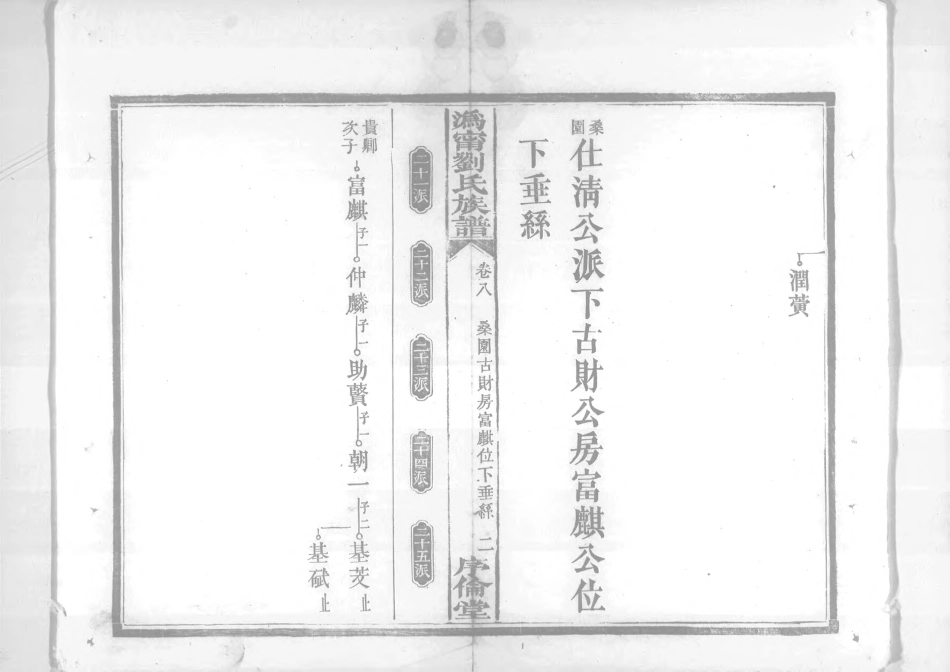 潤黃
桑園
仕淸公派下古財公房富麒公位
下垂絲
溈甯劉氏族譜
卷八
桑園古財房富麒位下垂絲
二
序倫堂
二十一派
二十二派
二十三派
二十四派
二十五派
貴卿
次子
富麒
子一
仲麟
子一
助贊
子一
朝一
子二
基茭止
基斌止